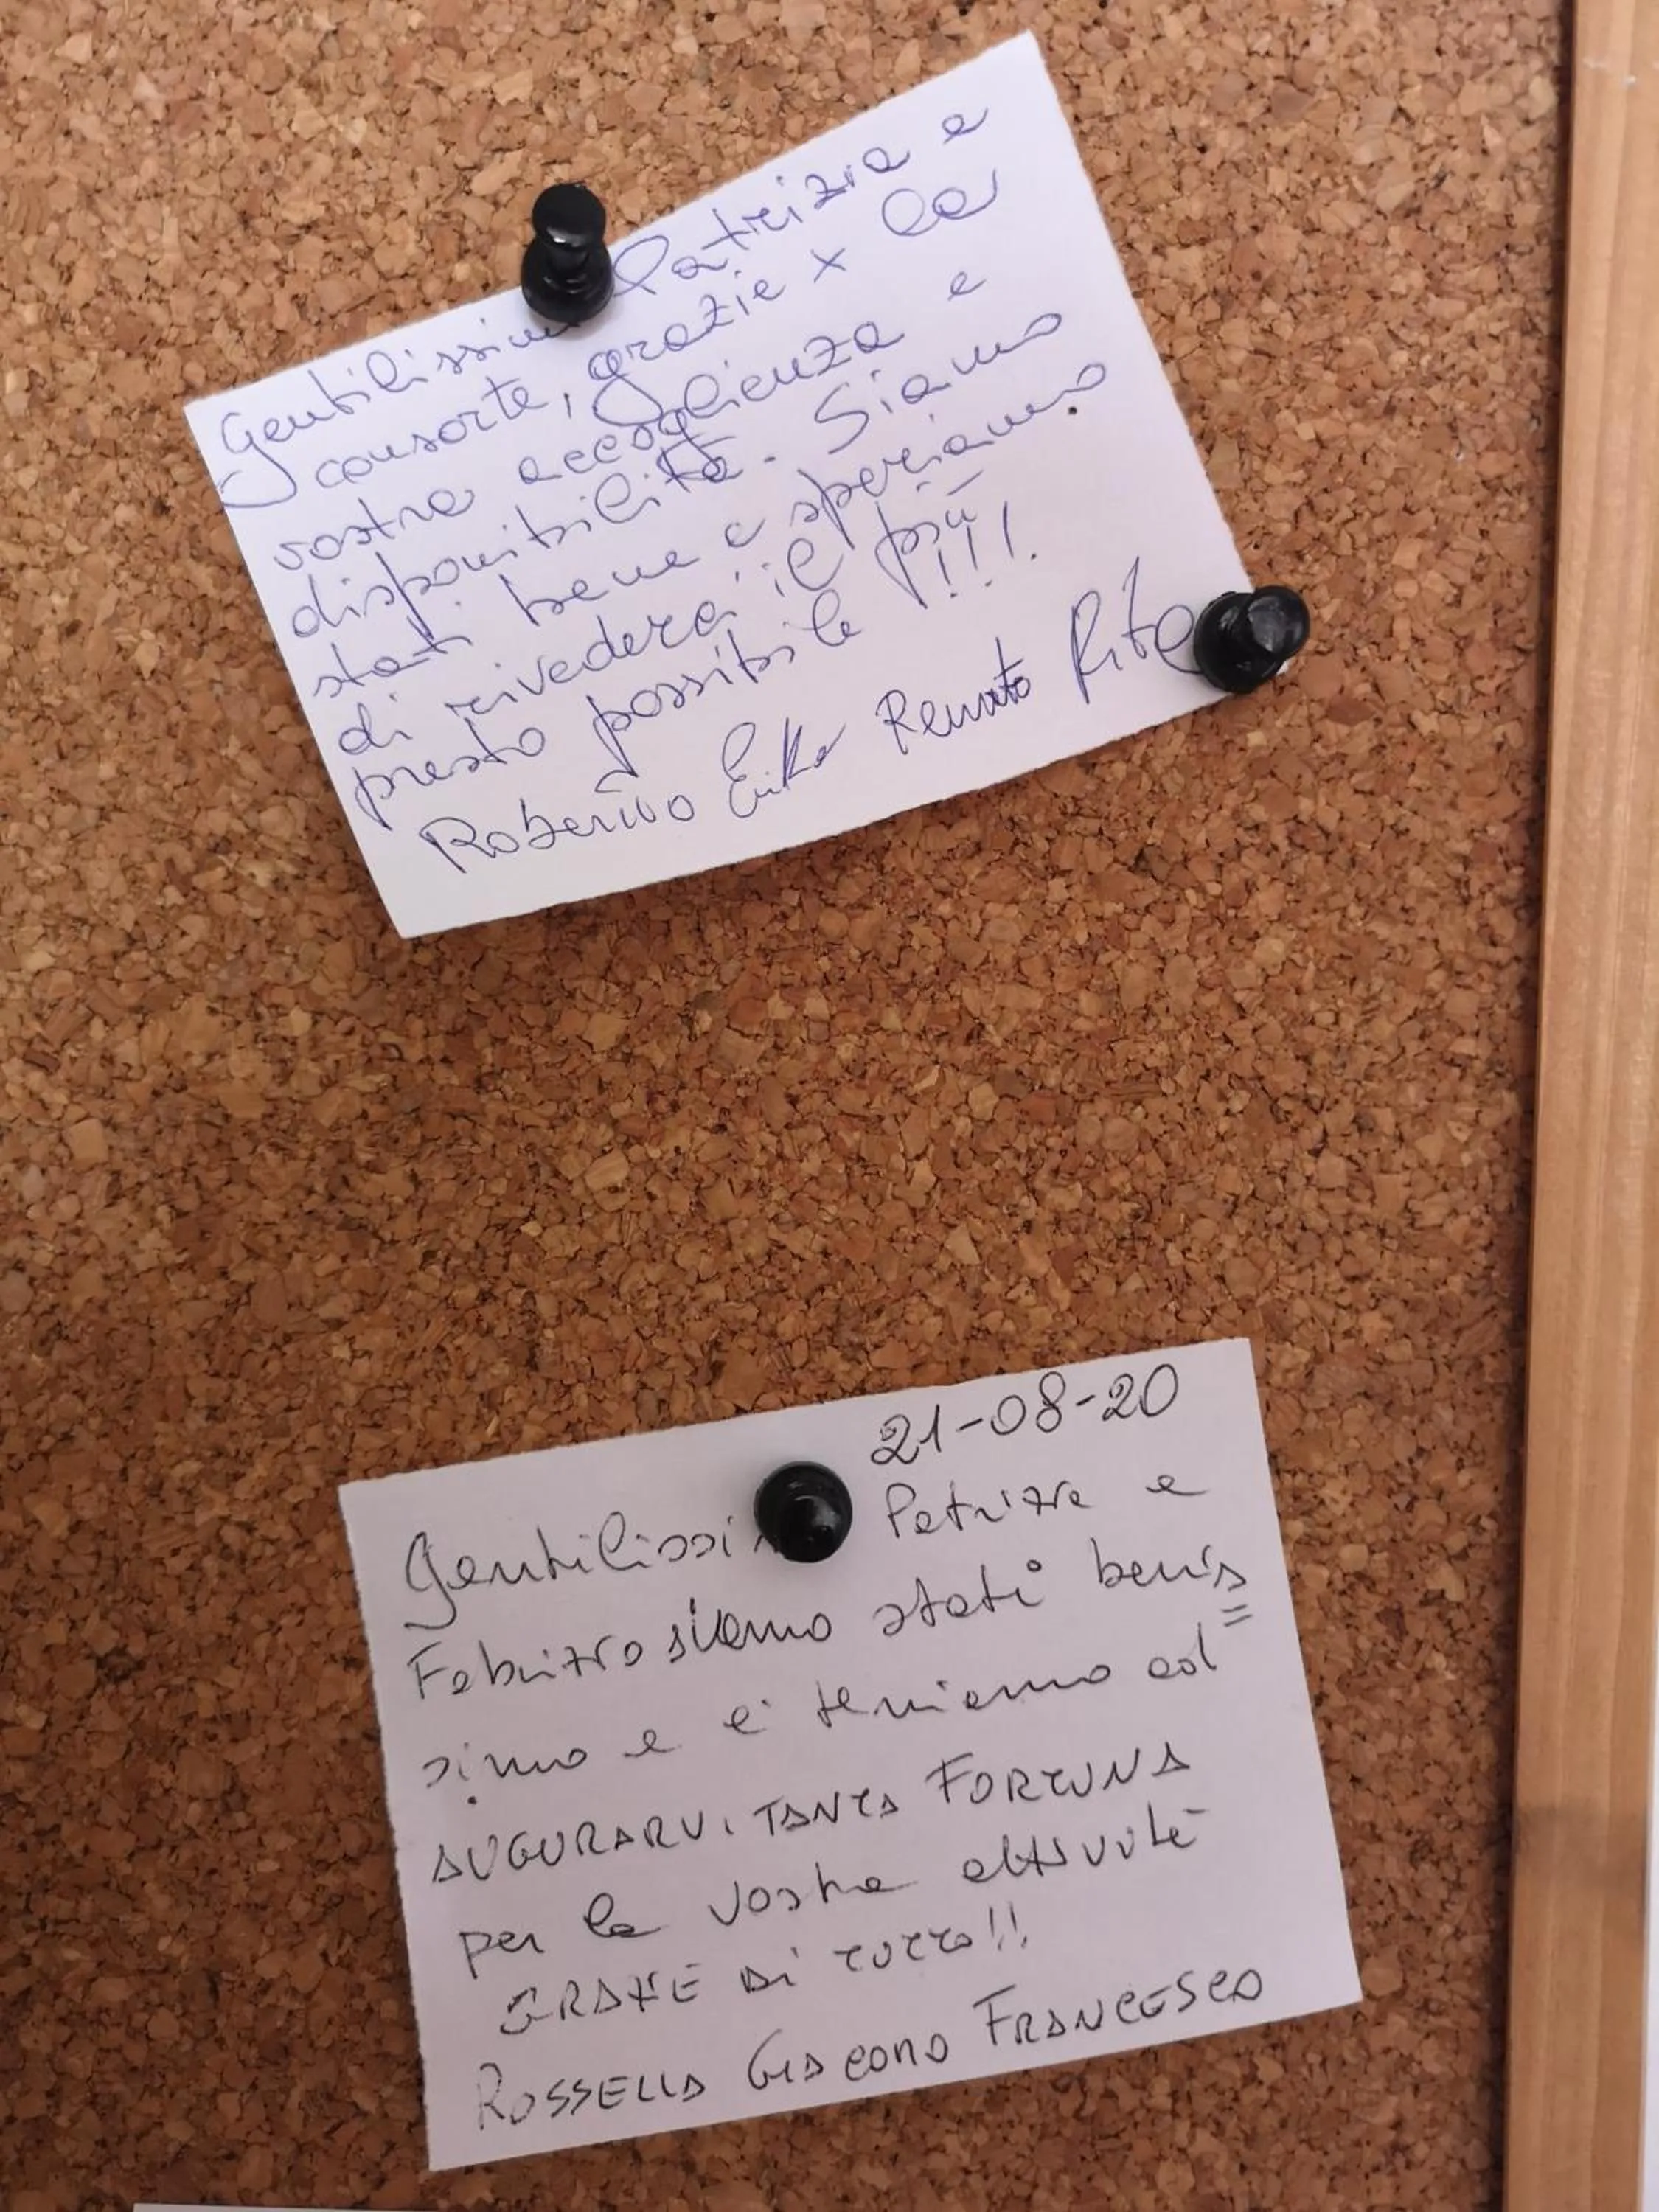 Gentilissimi Patrizia e
consorte, grazie x la
vostra accoglienza e
disponibilità. Siamo
stati bene e speriamo
di rivederci il più
presto possibile !!!
Roberto Erika Renato Rita
21-08-20
Gentilissimi Patrizia e
Fabrizio siamo stati benis=
simo e ci teniamo ad
AUGURARVI TANTA FORTUNA
per la vostra attività
GRAZIE DI TUTTO!!
ROSSELLA GIACOMO FRANCESCO